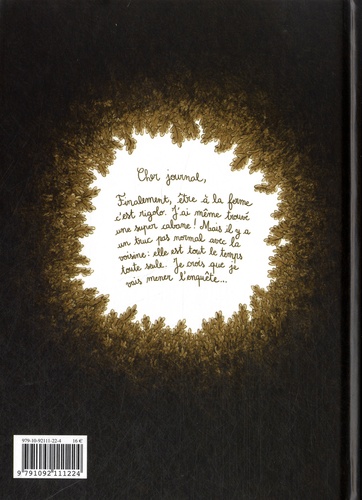 Cher journal,
Finalement, être à la ferme
c'est rigolo. J'ai même trouvé
une super cabane ! Mais il y a
un truc pas normal avec la
voisine : elle est tout le temps
toute seule. Je crois que je
vais mener l'enquête...
979-10-92111-22-4 16 €
9 791092 111224